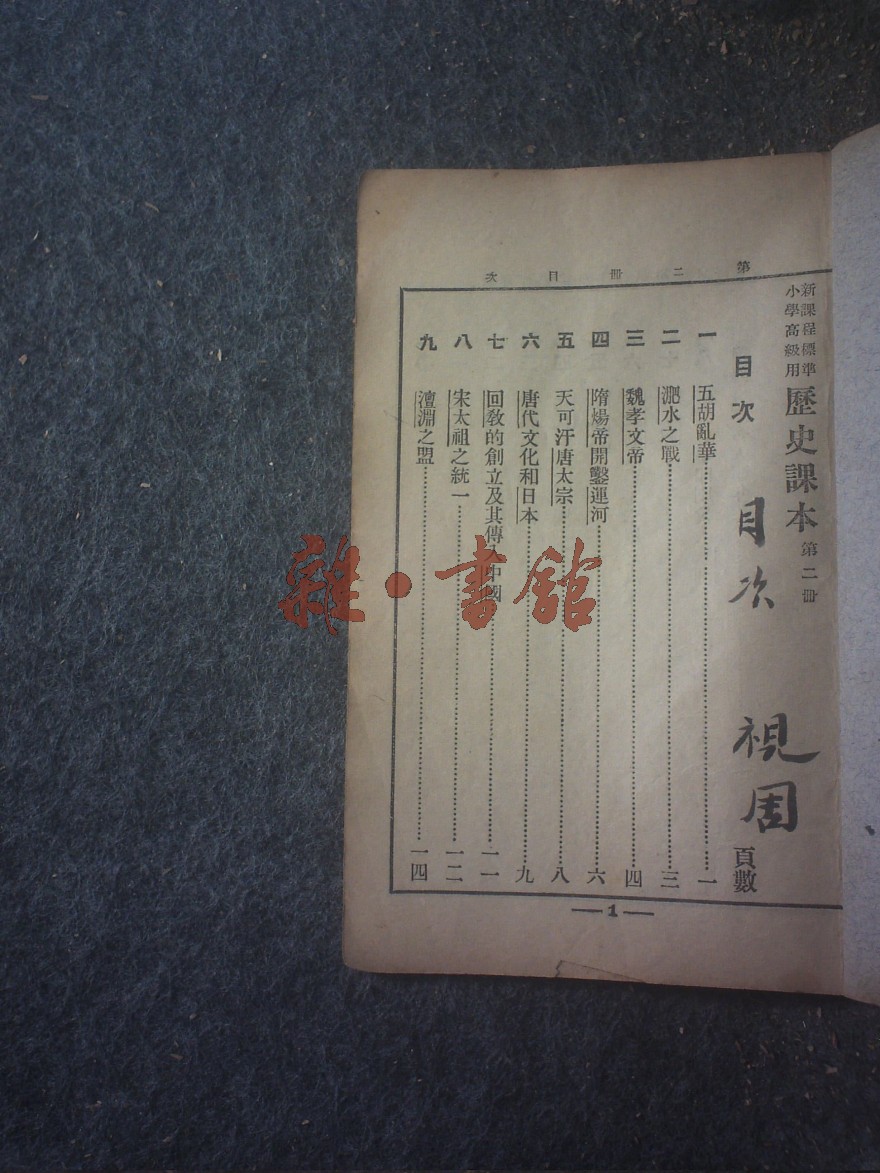 第二册目次
新課程標準
小學高級用
歷史課本 第二册
目次 頁數
目次 視周
一 五胡亂華 一
二 淝水之戰 三
三 魏孝文帝 四
四 隋煬帝開鑿運河 六
五 天可汗唐太宗 八
六 唐代文化和日本 九
七 回教的創立及其傳入中國 一一
八 宋太祖之統一 一二
九 澶淵之盟 一四
—1—
雜·書館